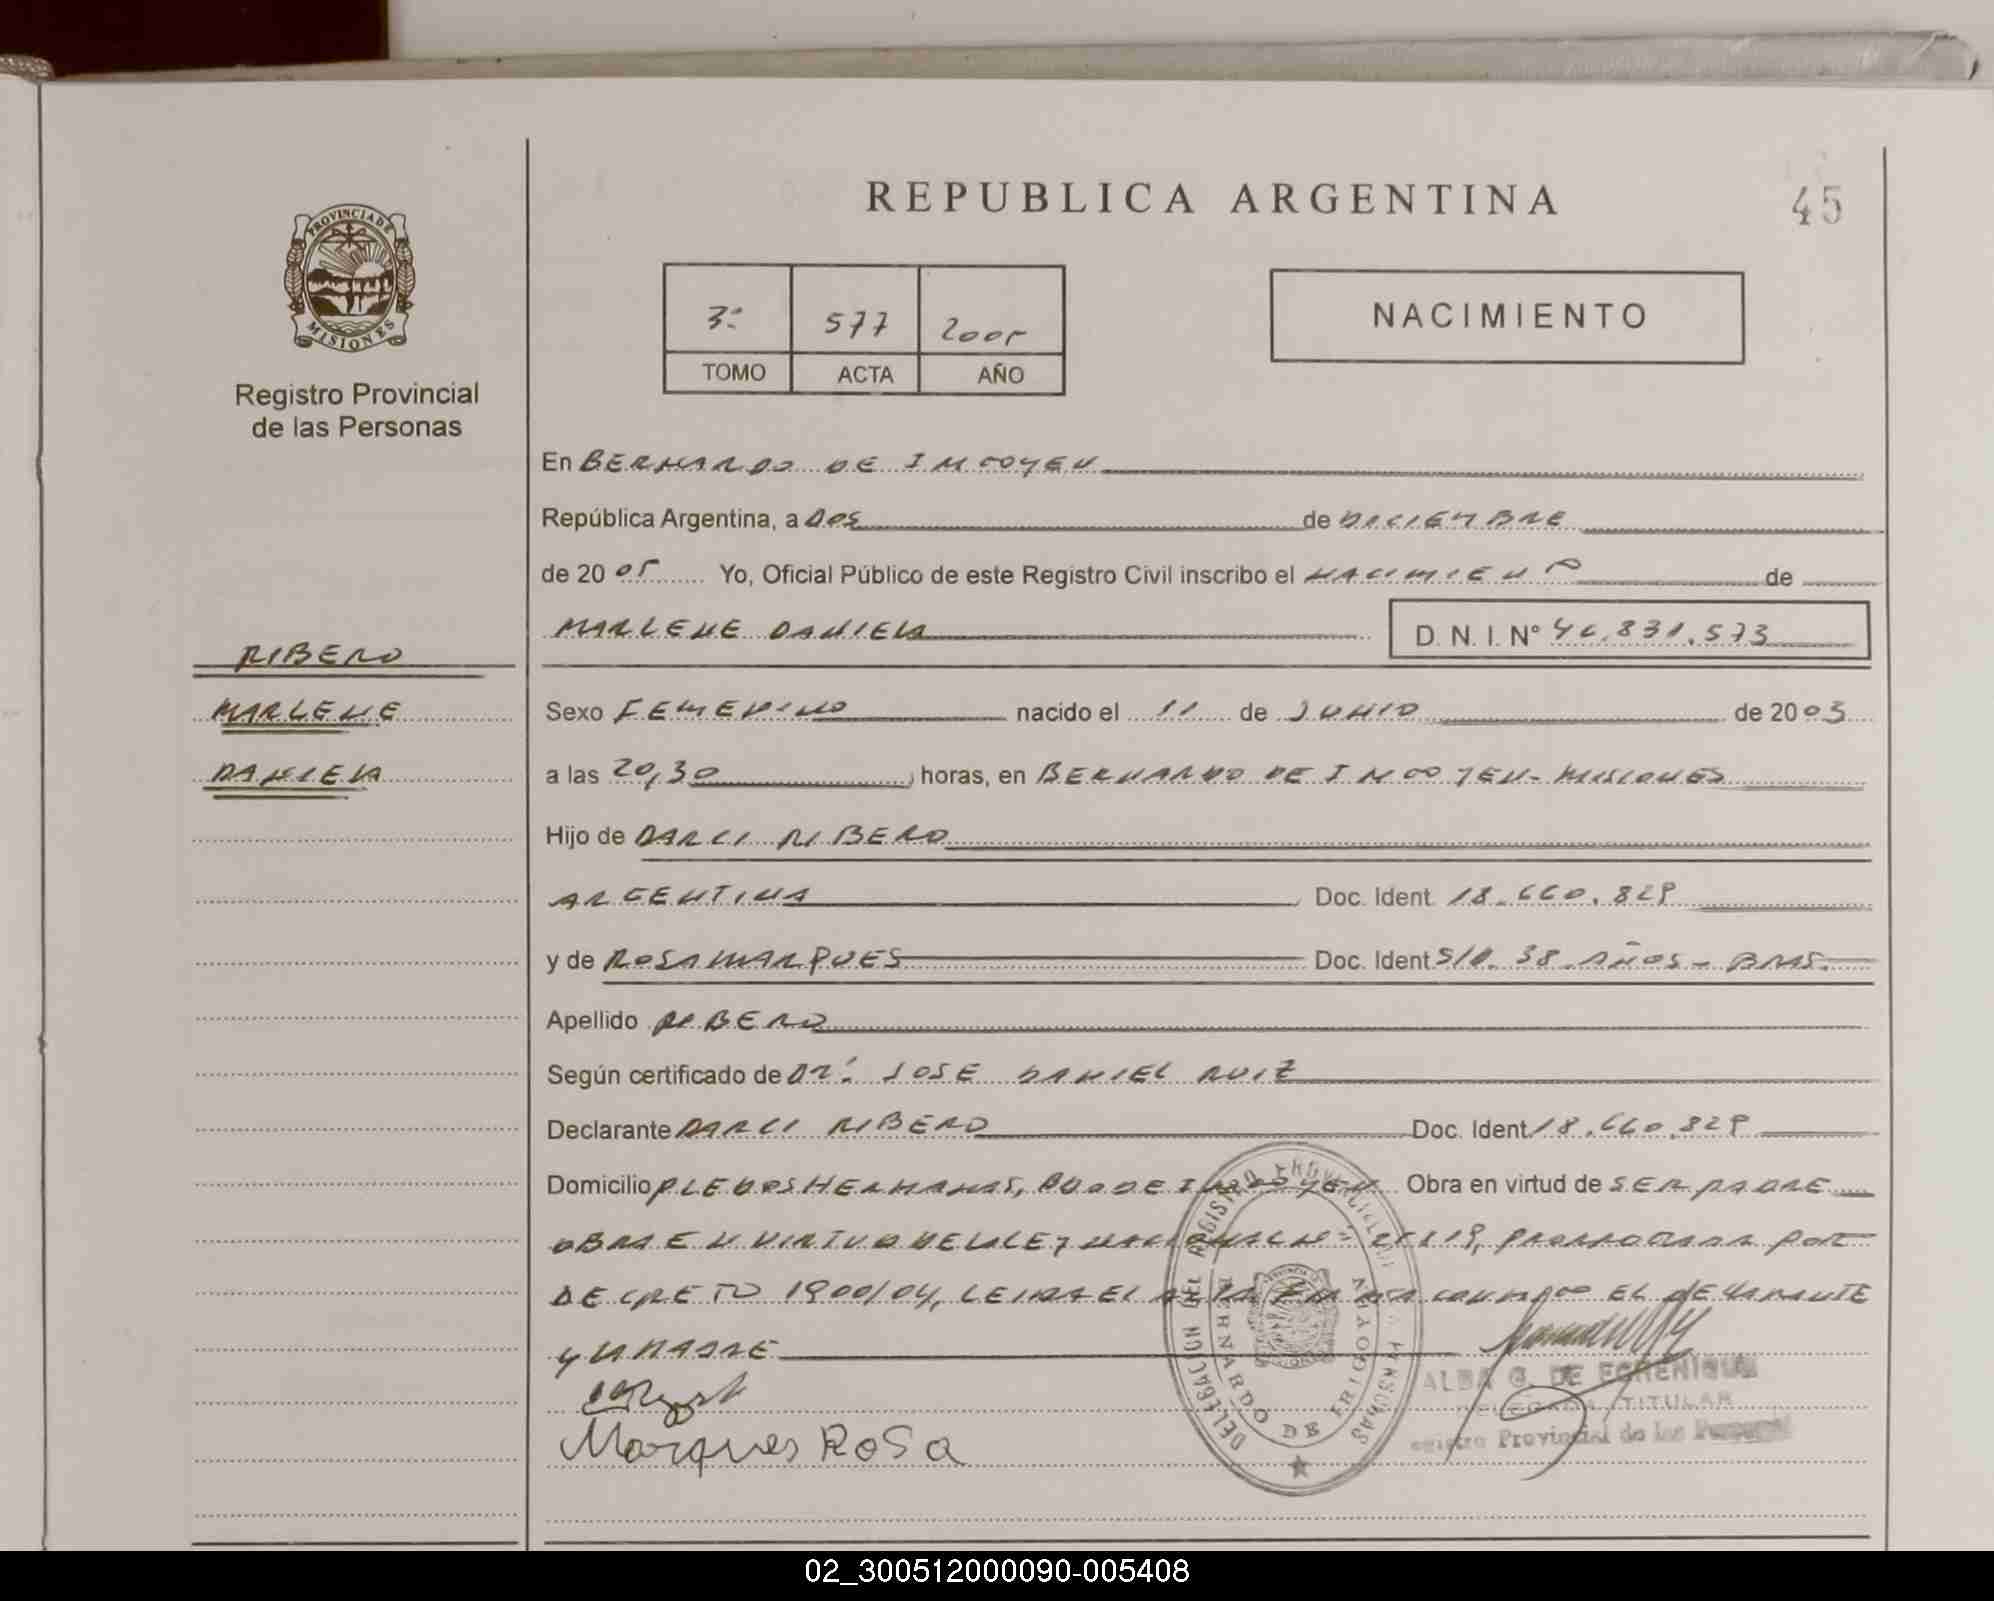 REPUBLICA ARGENTINA
45
PROVINCIA DE
MISIONES
Registro Provincial
de las Personas
3º 577 2005
TOMO ACTA AÑO
NACIMIENTO
En BERNARDO DE IRIGOYEN
República Argentina, a DOS de DICIEMBRE
de 2005 Yo, Oficial Público de este Registro Civil inscribo el NACIMIENTO de
MARLENE DANIELA D. N. I. Nº 46.831.573
RIBERO
MARLENE
DANIELA
Sexo FEMENINO nacido el 11 de JUNIO de 2003
a las 20,30 horas, en BERNARDO DE IRIGOYEN - MISIONES
Hijo de DARCI RIBERO
ARGENTINA Doc. Ident. 18.660.829
y de ROSA MARQUES Doc. Ident S/D. 38 AÑOS - BRAS.
Apellido RIBERO
Según certificado de DR. JOSE DANIEL RUIZ
Declarante DARCI RIBERO Doc. Ident 18.660.829
Domicilio PJE DOS HERMANAS, BDO DE IRIGOYEN Obra en virtud de SER PADRE
OBRA EN VIRTUD DE LA LEY NACIONAL Nº 25819, PRORROGADA POR
DECRETO 1900/04, LEIDA EL ACTA FIRMA CONMIGO EL DECLARANTE
Y LA MADRE
Marques RoSa
DELEGACION DEL REGISTRO PROVINCIAL DE LAS PERSONAS
BERNARDO DE IRIGOYEN
ALBA G. DE ECHENIQUE
DELEGADA TITULAR
Registro Provincial de las Personas
02_300512000090-005408